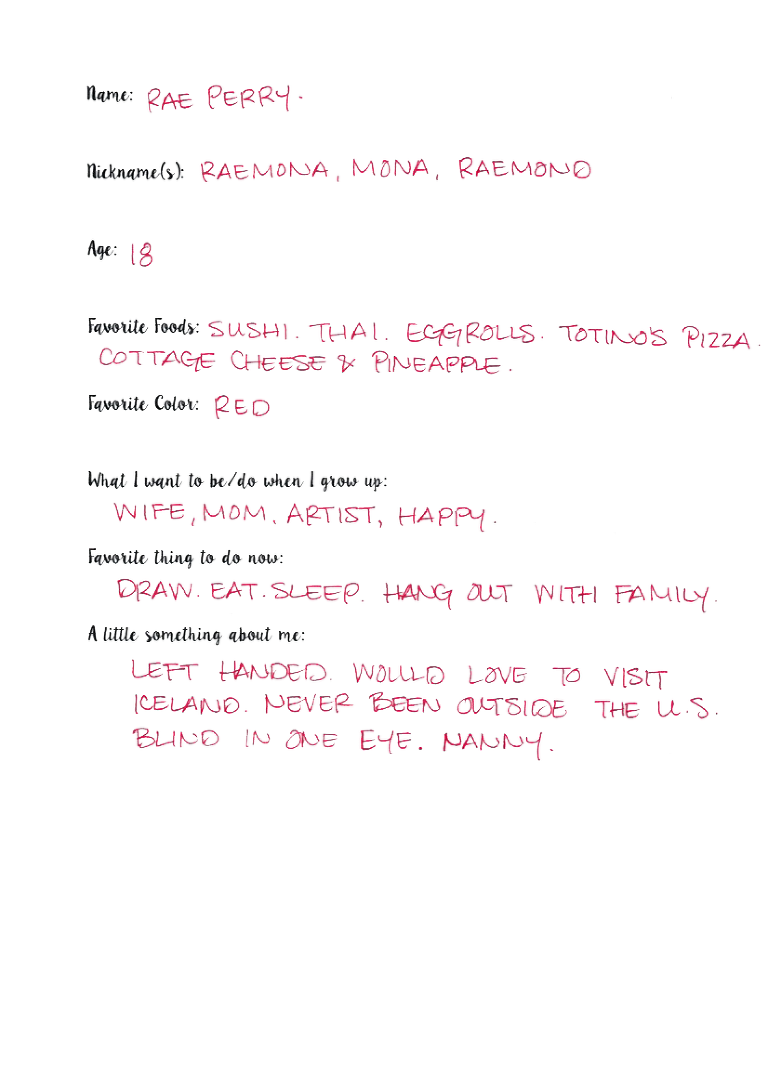 Name: RAE PERRY.
Nickname(s): RAEMONA, MONA, RAEMOND
Age: 18
Favorite Foods: SUSHI. THAI. EGGROLLS. TOTINO'S PIZZA.
COTTAGE CHEESE & PINEAPPLE.
Favorite Color: RED
What I want to be/do when I grow up:
WIFE, MOM, ARTIST, HAPPY.
Favorite thing to do now:
DRAW. EAT. SLEEP. HANG OUT WITH FAMILY.
A little something about me:
LEFT HANDED. WOULD LOVE TO VISIT
ICELAND. NEVER BEEN OUTSIDE THE U.S.
BLIND IN ONE EYE. NANNY.